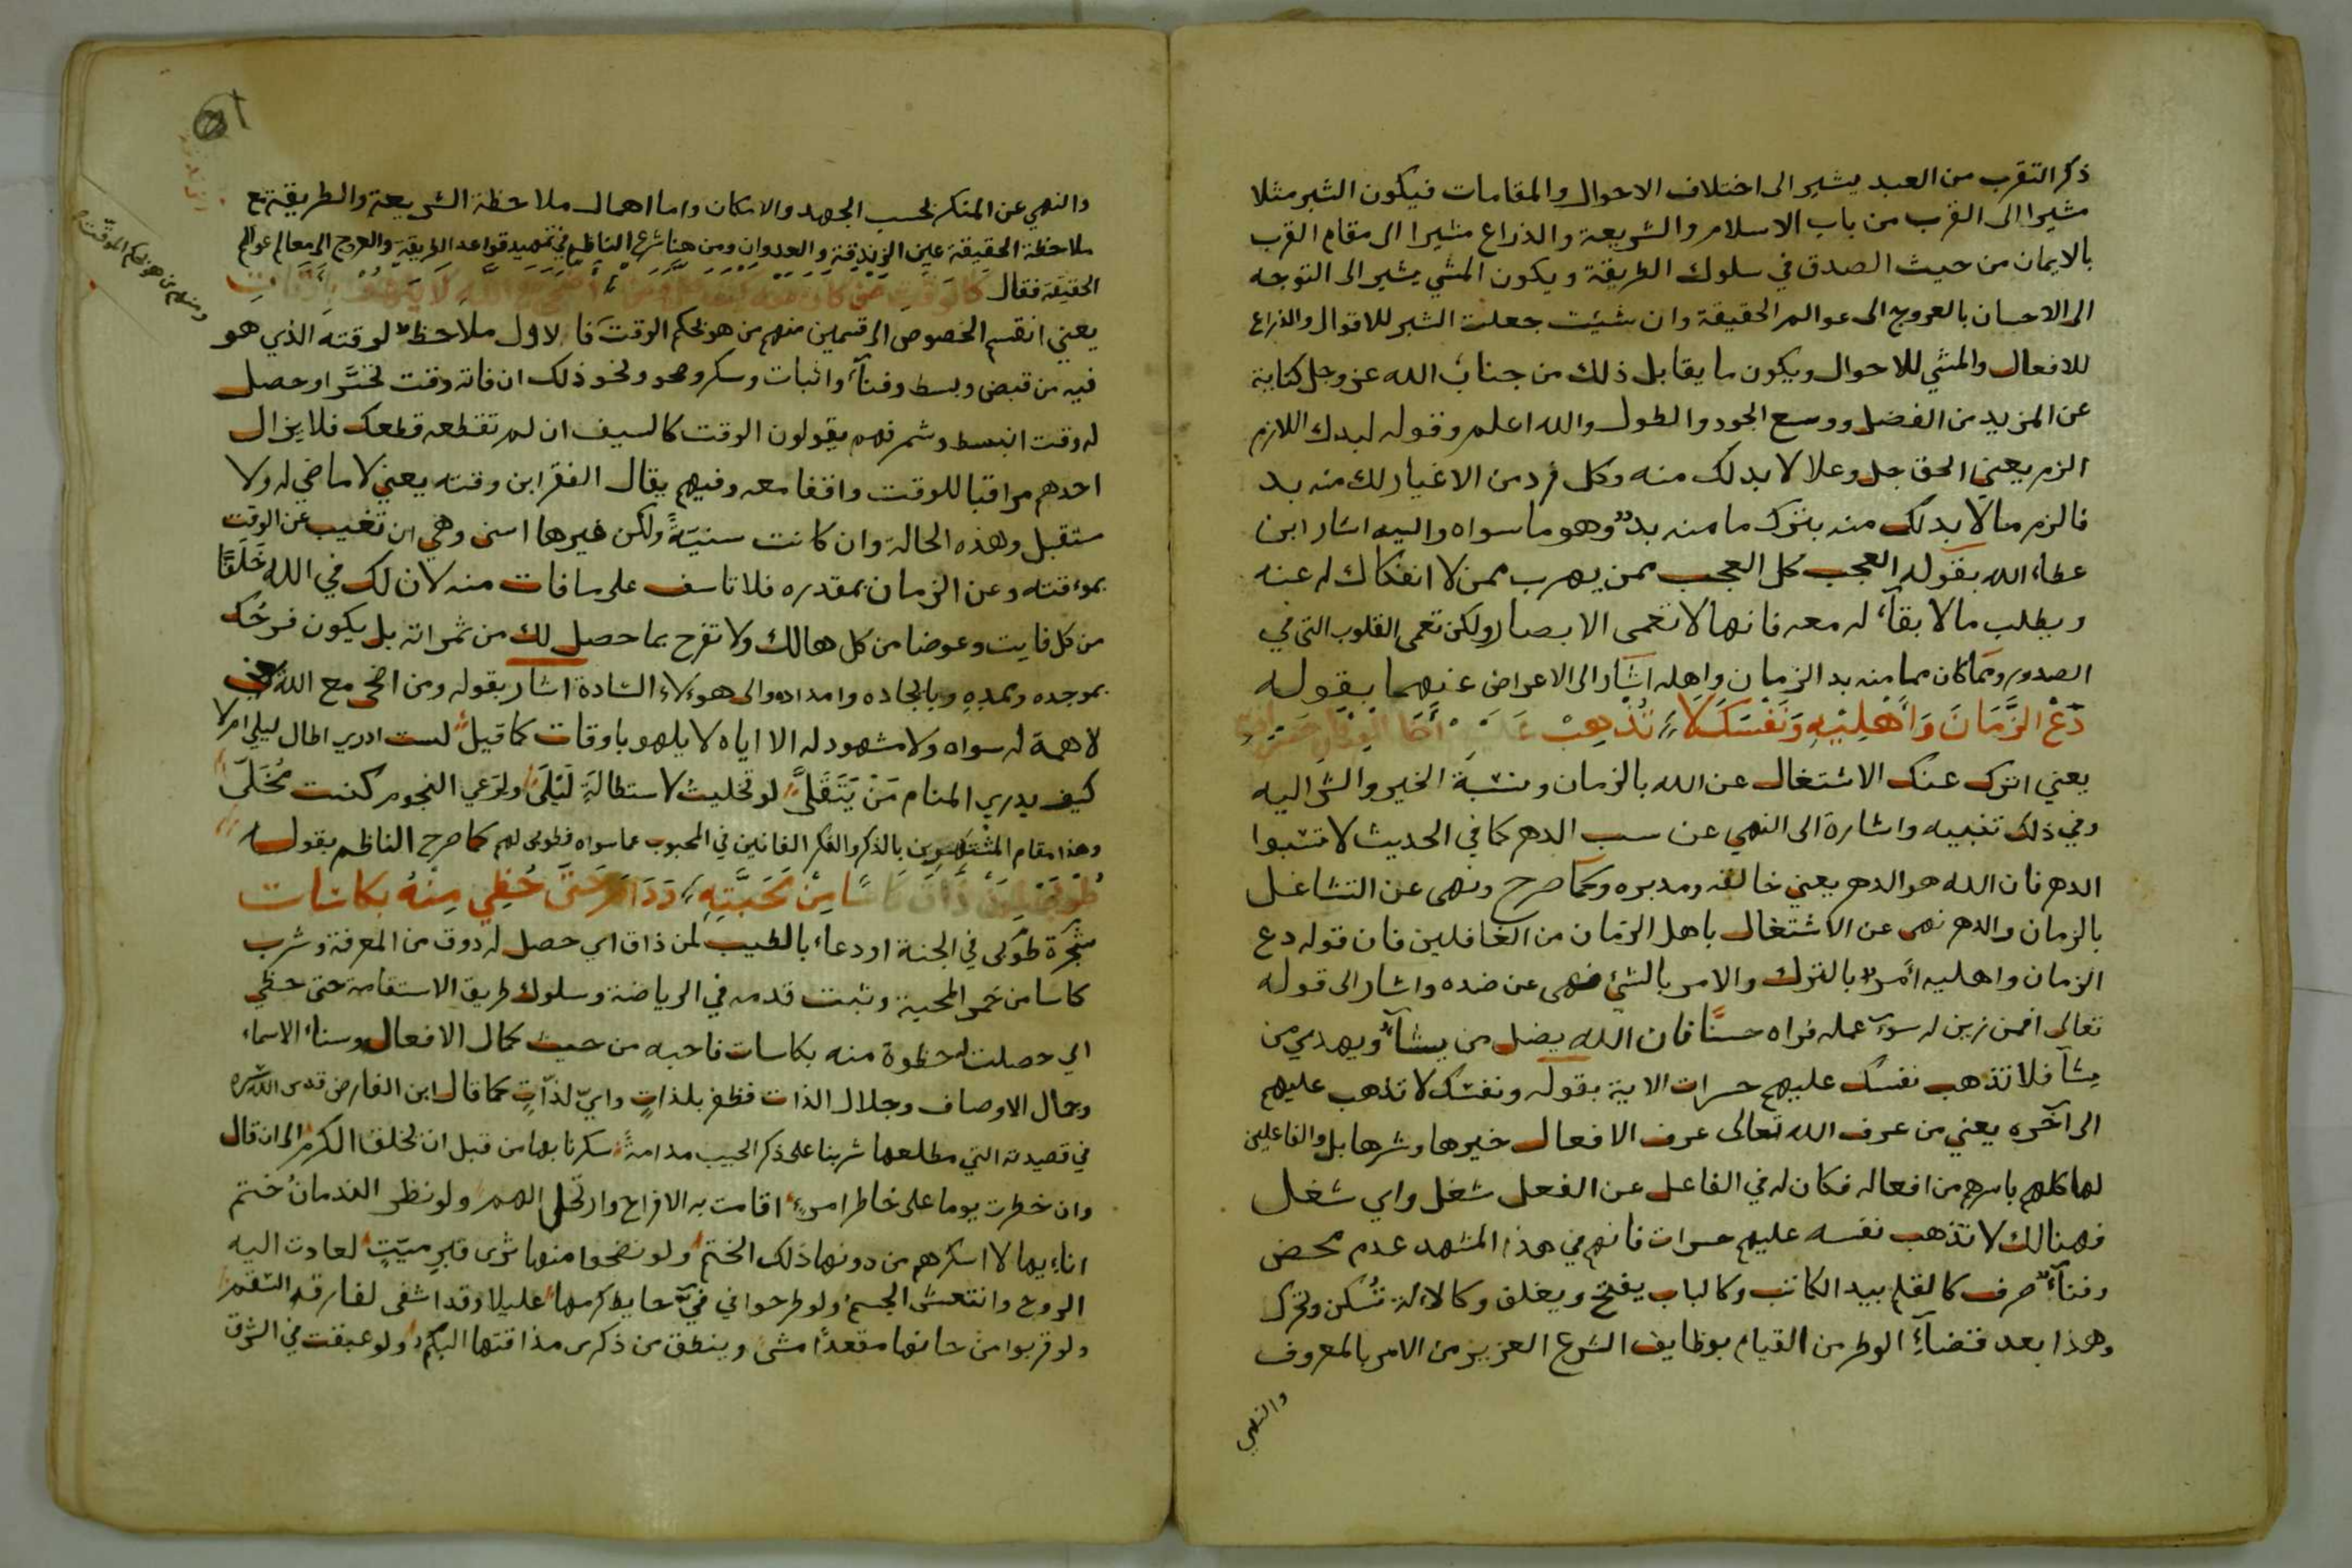 ذكر التقرب من العبد يشير الى اختلاف الاحوال والمقامات فيكون الشبر مثلا
مشيرا الى القرب من باب الاسلام والشريعة والذراع مشيرا الى مقام القرب
بالايمان من حيث الصدق في سلوك الطريقة ويكون المشي يشير الى التوجه
الى الاحسان بالعروج الى عوالم الحقيقة وان شيئت جعلت الشبر للاقوال والذراع
للافعال والمشي للاحوال ويكون ما يقابل ذلك من جناب الله عز وجل كناية
عن المزيد من الفضل ووسع الجود والطول والله اعلم وقوله لبدك اللازم
الزم يعني الحق جل وعلا لا بد لك منه وكل فرد من الاغيار لك منه بد
فالزم ما لا بد لك منه بترك ما منه بد وهو ما سواه واليه اشار ابن
عطاء الله بقوله العجب كل العجب ممن يهرب ممن لا انفكاك له عنه
ويطلب ما لا بقآء له معه فانها لا تعمى الابصار ولكن تعمى القلوب التي في
الصدور ومما كان مما منه بد الزمان واهله اشار الى الاعراض عنهما بقوله
دَعْ الزَّمَانَ وَاَهْلِيْهِ وَنَفْسَكَ لَا تُذْهِبْ
يعني اترك عنك الاشتغال عن الله بالزمان ونسبة الخير والشر اليه
وفي ذلك تنبيه واشارة الى النهي عن سب الدهر كما في الحديث لا تسبوا
الدهر فان الله هو الدهر يعني خالقه ومدبره وكما صرح ونهى عن التشاغل
بالزمان والدهر نهى عن الاشتغال باهل الزمان من الغافلين فان قوله دع
الزمان واهليه امر بالترك والامر بالشئ نهى عن ضده واشار الى قوله
تعالى افمن زين له سوء عمله فراه حسنًا فان الله يضل من يشآء ويهدي من
يشآ فلا تذهب نفسك عليهم حسرات الاية بقوله ونفسك لا تذهب عليهم
الى آخره يعني من عرف الله تعالى عرف الافعال خيرها وشرها بل والفاعلين
لها كلهم باسرهم من افعاله فكان له في الفاعل عن الفعل شغل واي شغل
فهنالك لا تذهب نفسه عليهم حسرات فانهم في هذا المشهد عدم محض
وفنآء صرف كالقلم بيد الكاتب وكالباب يفتح ويغلق وكالالة تسكن وتحرك
وهذا بعد قضآء الوطر من القيام بوظايف الشرع العزيز من الامر بالمعروف
والنهي
والنهي عن المنكر بحسب الجهد والامكان واما اهمال ملاحظة الشريعة والطريقة مع
ملاحظة الحقيقة عين الزندقة والعدوان ومن هنا شرع الناظم في تمهيد قواعد الطريقة والعروج الى معالم عوالم
الحقيقة فقال
ومنهم من هو بحكم الموقت
يعني انقسم الخصوص الى قسمين منهم من هو بحكم الوقت فالاول ملاحظ لوقته الذي هو
فيه من قبض وبسط وفنآء واثبات وسكر وصحو ونحو ذلك ان فاته وقت تحسَّر او حصل
له وقت انبسط وشمر فهم يقولون الوقت كالسيف ان لم تقطعه قطعك فلا يزال
احدهم مراقبا للوقت واقفا معه وفيهم يقال الفقر ابن وقته يعني لا ماضي له ولا
مستقبل وهذه الحالة وان كانت سنيّةً ولكن غيرها اسنى وهي ان تغيب عن الوقت
بموقته وعن الزمان بمقدره فلا تاسف على ما فات منه لان لك في الله خَلَفًا
من كل فايت وعوضا من كل هالك ولا تفرح بما حصل لك من ثمراته بل يكون فرحُك
بموجده وممده وبايجاده وامداده والى هؤلاء السادة اشار بقوله ومن اضحى مع الله يعني
لا همة له سواه ولا مشهود له الا اياه لا يلهو باوقات كما قيل لست ادري اطال ليلي ام لا
كيف يدري المنام مَنْ يَتَقَلَّى لو تخليتُ لاستطالةِ لَيْلَى ولرَعي النجوم كنت مُخَلَّى
وهذا مقام المشتهرين بالذكر والفكر الفانين في المحبوب عما سواه فطوبى لهم كما صرح الناظم بقوله
طُوبَى لِمَنْ ذَاقَ كَاسًا مِنْ مَحَبَّتِهِ وَدَامَ حَتَّى حُظِي مِنْهُ بكاسَات
شجرة طوبى في الجنة او دعاء بالطيب لمن ذاق اي حصل له ذوق من المعرفة وشرب
كاسا من خمر المحبة وثبت قدمه في الرياضة وسلوك طريق الاستقامة حتى حظي
اي حصلت له حظوة منه بكاسات فاحبه من حيث كمال الافعال وسناء الاسماء
وجمال الاوصاف وجلال الذات فظفر بلذاتٍ وايّ لذّاتٍ كما قال ابن الفارض قدس الله سره
في قصيدته التي مطلعها شربنا على ذكر الحبيب مدامةً سكرنا بها من قبل ان يخلق الكرم الى ان قال
وان خطرت يوما على خاطر امرءٍ اقامت به الافراح وارتحل الهم ولو نظر الندمانُ ختم
انايها لاسكرهم من دونها ذلك الختم ولو نضحوا منها ثرى قبرِ ميّتٍ لعادت اليه
الروح وانتعش الجسم ولو طرحوا في فيّ حايط كرمها عليلا وقد اشفى لفارقه السقم
ولو قربوا من حانها مقعدًا مشى وينطق من ذكرى مذاقتها البكم ولو عبقت في الشرق